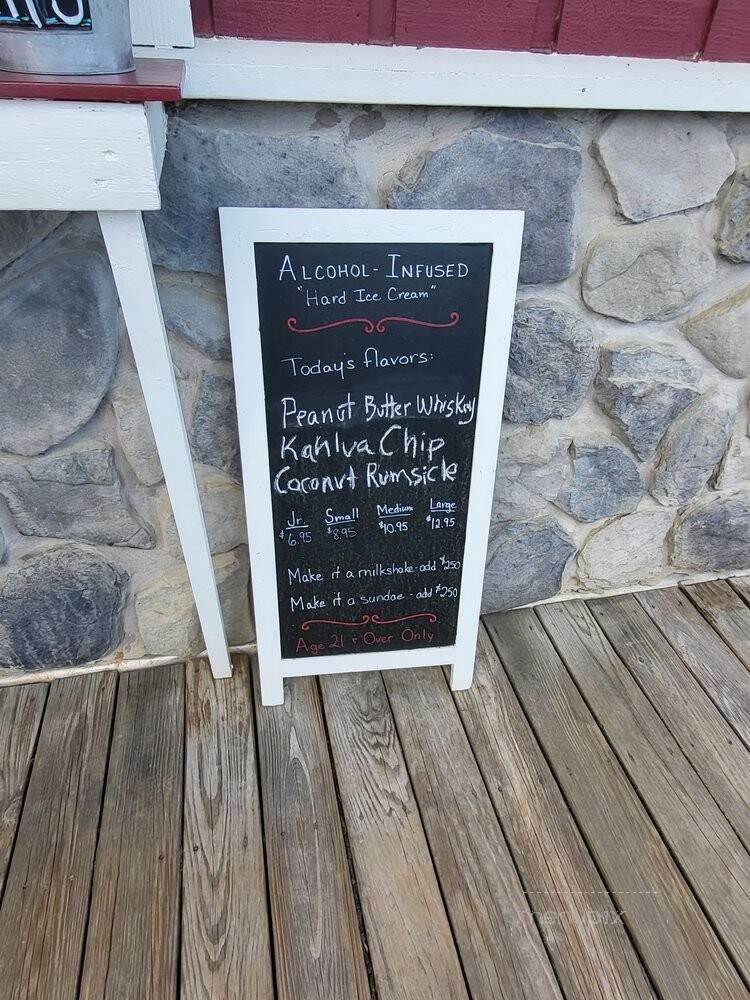 ALCOHOL-INFUSED
"Hard Ice Cream"
Today's flavors:
Peanut Butter Whiskey
Kahlua Chip
Coconut Rumsicle
Jr. Small Medium Large
$6.95 $8.95 $10.95 $12.95
Make it a milkshake - add $2.50
Make it a sundae - add $2.50
Age 21 + Over Only
menupix